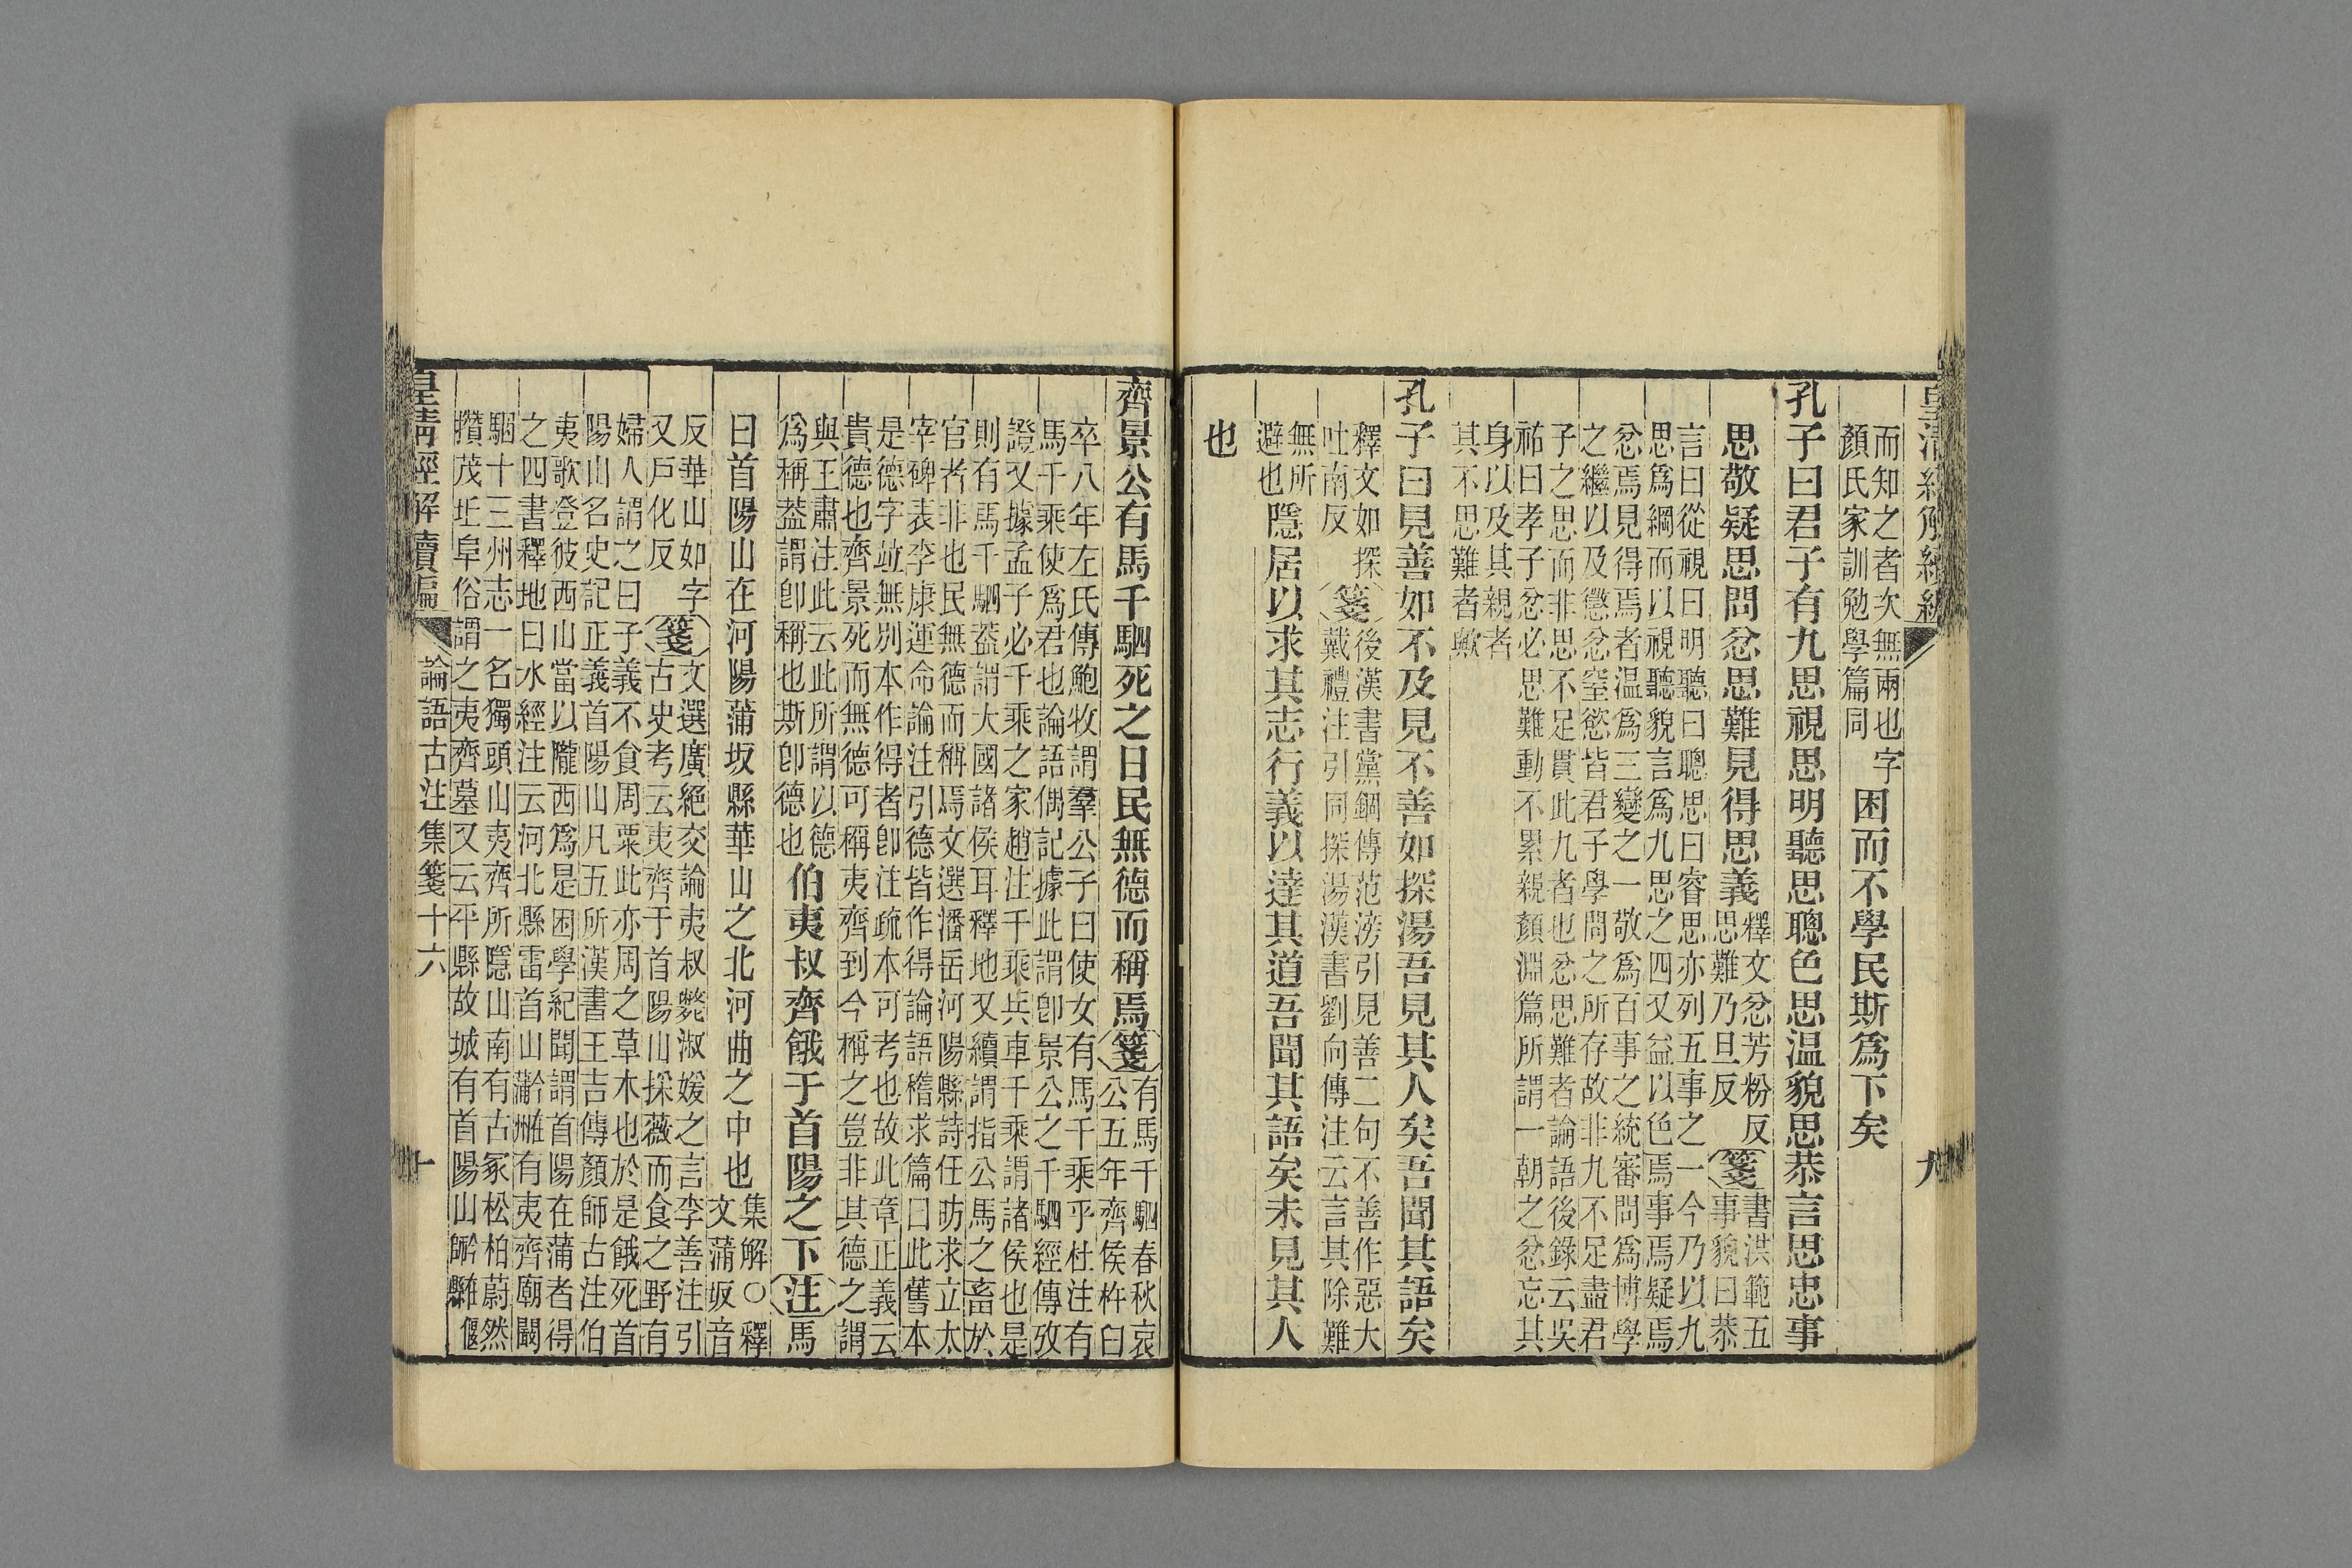 而知之者次無兩也字
顏氏家訓勉學篇同
困而不學民斯爲下矣
孔子曰君子有九思視思明聽思聰色思温貌思恭言思忠事
思敬疑思問忿思難見得思義
釋文忿芳粉反
思難乃旦反
箋
書洪範五
事貌曰恭
言曰從視曰明聽曰聰思曰睿思亦列五事之一今乃以九
思爲綱而以視聽貌言爲九思之四又益以色焉事焉疑焉
忿焉見得焉者温爲三變之一敬爲百事之統審問爲博學
之繼以及懲忿窒慾皆君子學問之所存故非九不足盡君
子之思而非思不足貫此九者也忿思難者論語後錄云吳
祐曰孝子忿必思難動不累親顏淵篇所謂一朝之忿忘其
身以及其親者
其不思難者歟
孔子曰見善如不及見不善如探湯吾見其人矣吾聞其語矣
釋文如探
吐南反
箋
後漢書黨錮傳范滂引見善二句不善作惡大
戴禮注引同探湯漢書劉向傳注云言其除難
無所
避也
隱居以求其志行義以達其道吾聞其語矣未見其人
也
九
齊景公有馬千駟死之日民無德而稱焉
箋
有馬千駟春秋哀
公五年齊侯杵臼
卒八年左氏傳鮑牧謂羣公子曰使女有馬千乘乎杜注有
馬千乘使爲君也論語偶記據此謂卽景公之千駟經傳攷
證又據孟子必千乘之家趙注千乘兵車千乘謂諸侯也是
則有馬千駟葢謂大國諸侯耳釋地又續謂指公馬之畜於
官者非也民無德而稱焉文選潘岳河陽縣詩任昉求立太
宰碑表李康運命論注引德皆作得論語稽求篇曰此舊本
是德字竝無別本作得者卽注疏本可考也故此章正義云
貴德也齊景死而無德可稱夷齊到今稱之豈非其德之謂
與王肅注此云此所謂以德
爲稱葢謂卽稱也斯卽德也
伯夷叔齊餓于首陽之下
注
馬
曰首陽山在河陽蒲坂縣華山之北河曲之中也
集解○釋
文蒲坂音
反華山如字
又戶化反
箋
文選廣絕交論夷叔斃淑媛之言李善注引
古史考云夷齊于首陽山採薇而食之野有
婦人謂之曰子義不食周粟此亦周之草木也於是餓死首
陽山名史記正義首陽山凡五所漢書王吉傳顏師古注伯
夷歌登彼西山當以隴西爲是困學紀聞謂首陽在蒲者得
之四書釋地曰水經注云河北縣雷首山有夷齊廟闞
駰十三州志一名獨頭山夷齊所隱山南有古冢松柏蔚然
攢茂丘阜俗謂之夷齊墓又云平縣故城有首陽山偃
皇清經解續編
論語古注集箋十六
十